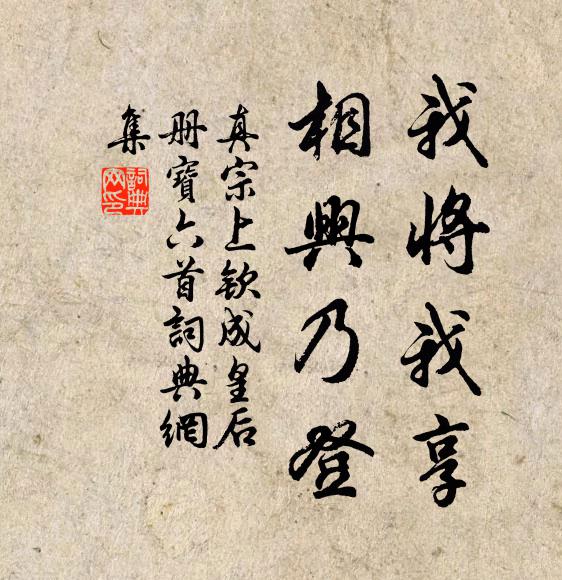 我將我享
相興乃登
真宗上欽成皇后
册寶六首詞典網
集
詞典
网印